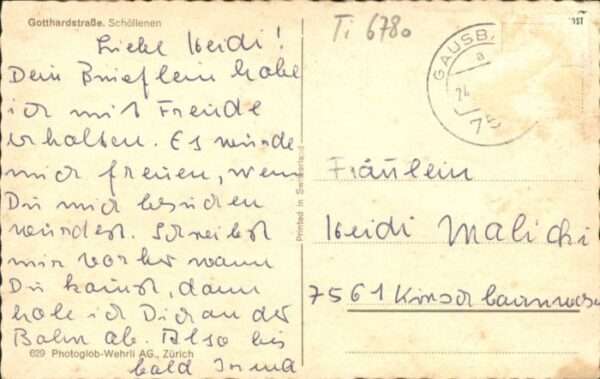 Gotthardstraße. Schöllenen
Liebe Heidi!
Dein Brieflein habe
ich mit Freude
erhalten. Es würde
mich freuen, wenn
Du mich besuchen
würdest. Schreibst
mir vorher wann
Du kannst, dann
hole ich Dich an der
Bahn ab. Also bis
bald Irma
629 Photoglob-Wehrli AG., Zürich
Printed in Switzerland
Ti 6780
GAUSB
a
24.
75
Fräulein
Heidi Malicki
7561 Kirschbaumwasen